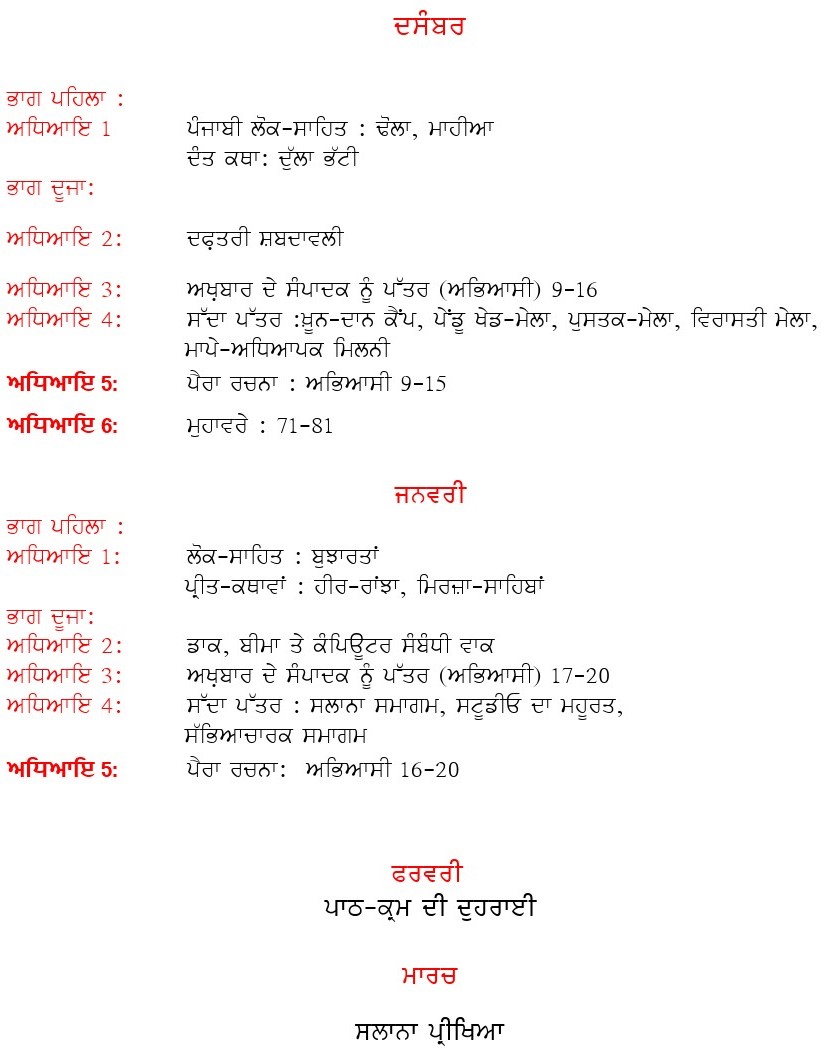 ਦਸੰਬਰ
ਭਾਗ ਪਹਿਲਾ :
ਅਧਿਆਇ 1 ਪੰਜਾਬੀ ਲੋਕ-ਸਾਹਿਤ : ਢੋਲਾ, ਮਾਹੀਆ
ਦੰਤ ਕਥਾ: ਦੁੱਲਾ ਭੱਟੀ
ਭਾਗ ਦੂਜਾ:
ਅਧਿਆਇ 2: ਦਫ਼ਤਰੀ ਸ਼ਬਦਾਵਲੀ
ਅਧਿਆਇ 3: ਅਖ਼ਬਾਰ ਦੇ ਸੰਪਾਦਕ ਨੂੰ ਪੱਤਰ (ਅਭਿਆਸੀ) 9-16
ਅਧਿਆਇ 4: ਸੱਦਾ ਪੱਤਰ :ਖ਼ੂਨ-ਦਾਨ ਕੈਂਪ, ਪੇਂਡੂ ਖੇਡ-ਮੇਲਾ, ਪੁਸਤਕ-ਮੇਲਾ, ਵਿਰਾਸਤੀ ਮੇਲਾ,
ਮਾਪੇ-ਅਧਿਆਪਕ ਮਿਲਨੀ
ਅਧਿਆਇ 5: ਪੈਰਾ ਰਚਨਾ : ਅਭਿਆਸੀ 9-15
ਅਧਿਆਇ 6: ਮੁਹਾਵਰੇ : 71-81
ਜਨਵਰੀ
ਭਾਗ ਪਹਿਲਾ :
ਅਧਿਆਇ 1: ਲੋਕ-ਸਾਹਿਤ : ਬੁਝਾਰਤਾਂ
ਪ੍ਰੀਤ-ਕਥਾਵਾਂ : ਹੀਰ-ਰਾਂਝਾ, ਮਿਰਜ਼ਾ-ਸਾਹਿਬਾਂ
ਭਾਗ ਦੂਜਾ:
ਅਧਿਆਇ 2: ਡਾਕ, ਬੀਮਾ ਤੇ ਕੰਪਿਊਟਰ ਸੰਬੰਧੀ ਵਾਕ
ਅਧਿਆਇ 3: ਅਖ਼ਬਾਰ ਦੇ ਸੰਪਾਦਕ ਨੂੰ ਪੱਤਰ (ਅਭਿਆਸੀ) 17-20
ਅਧਿਆਇ 4: ਸੱਦਾ ਪੱਤਰ : ਸਲਾਨਾ ਸਮਾਗਮ, ਸਟੂਡੀਓ ਦਾ ਮਹੂਰਤ,
ਸੱਭਿਆਚਾਰਕ ਸਮਾਗਮ
ਅਧਿਆਇ 5: ਪੈਰਾ ਰਚਨਾ: ਅਭਿਆਸੀ 16-20
ਫਰਵਰੀ
ਪਾਠ-ਕ੍ਰਮ ਦੀ ਦੁਹਰਾਈ
ਮਾਰਚ
ਸਲਾਨਾ ਪ੍ਰੀਖਿਆ